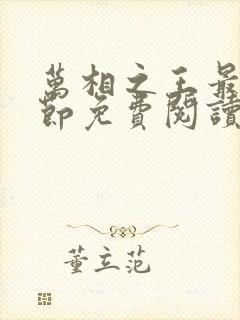 萬相之王最
節免費閱讀
董立范